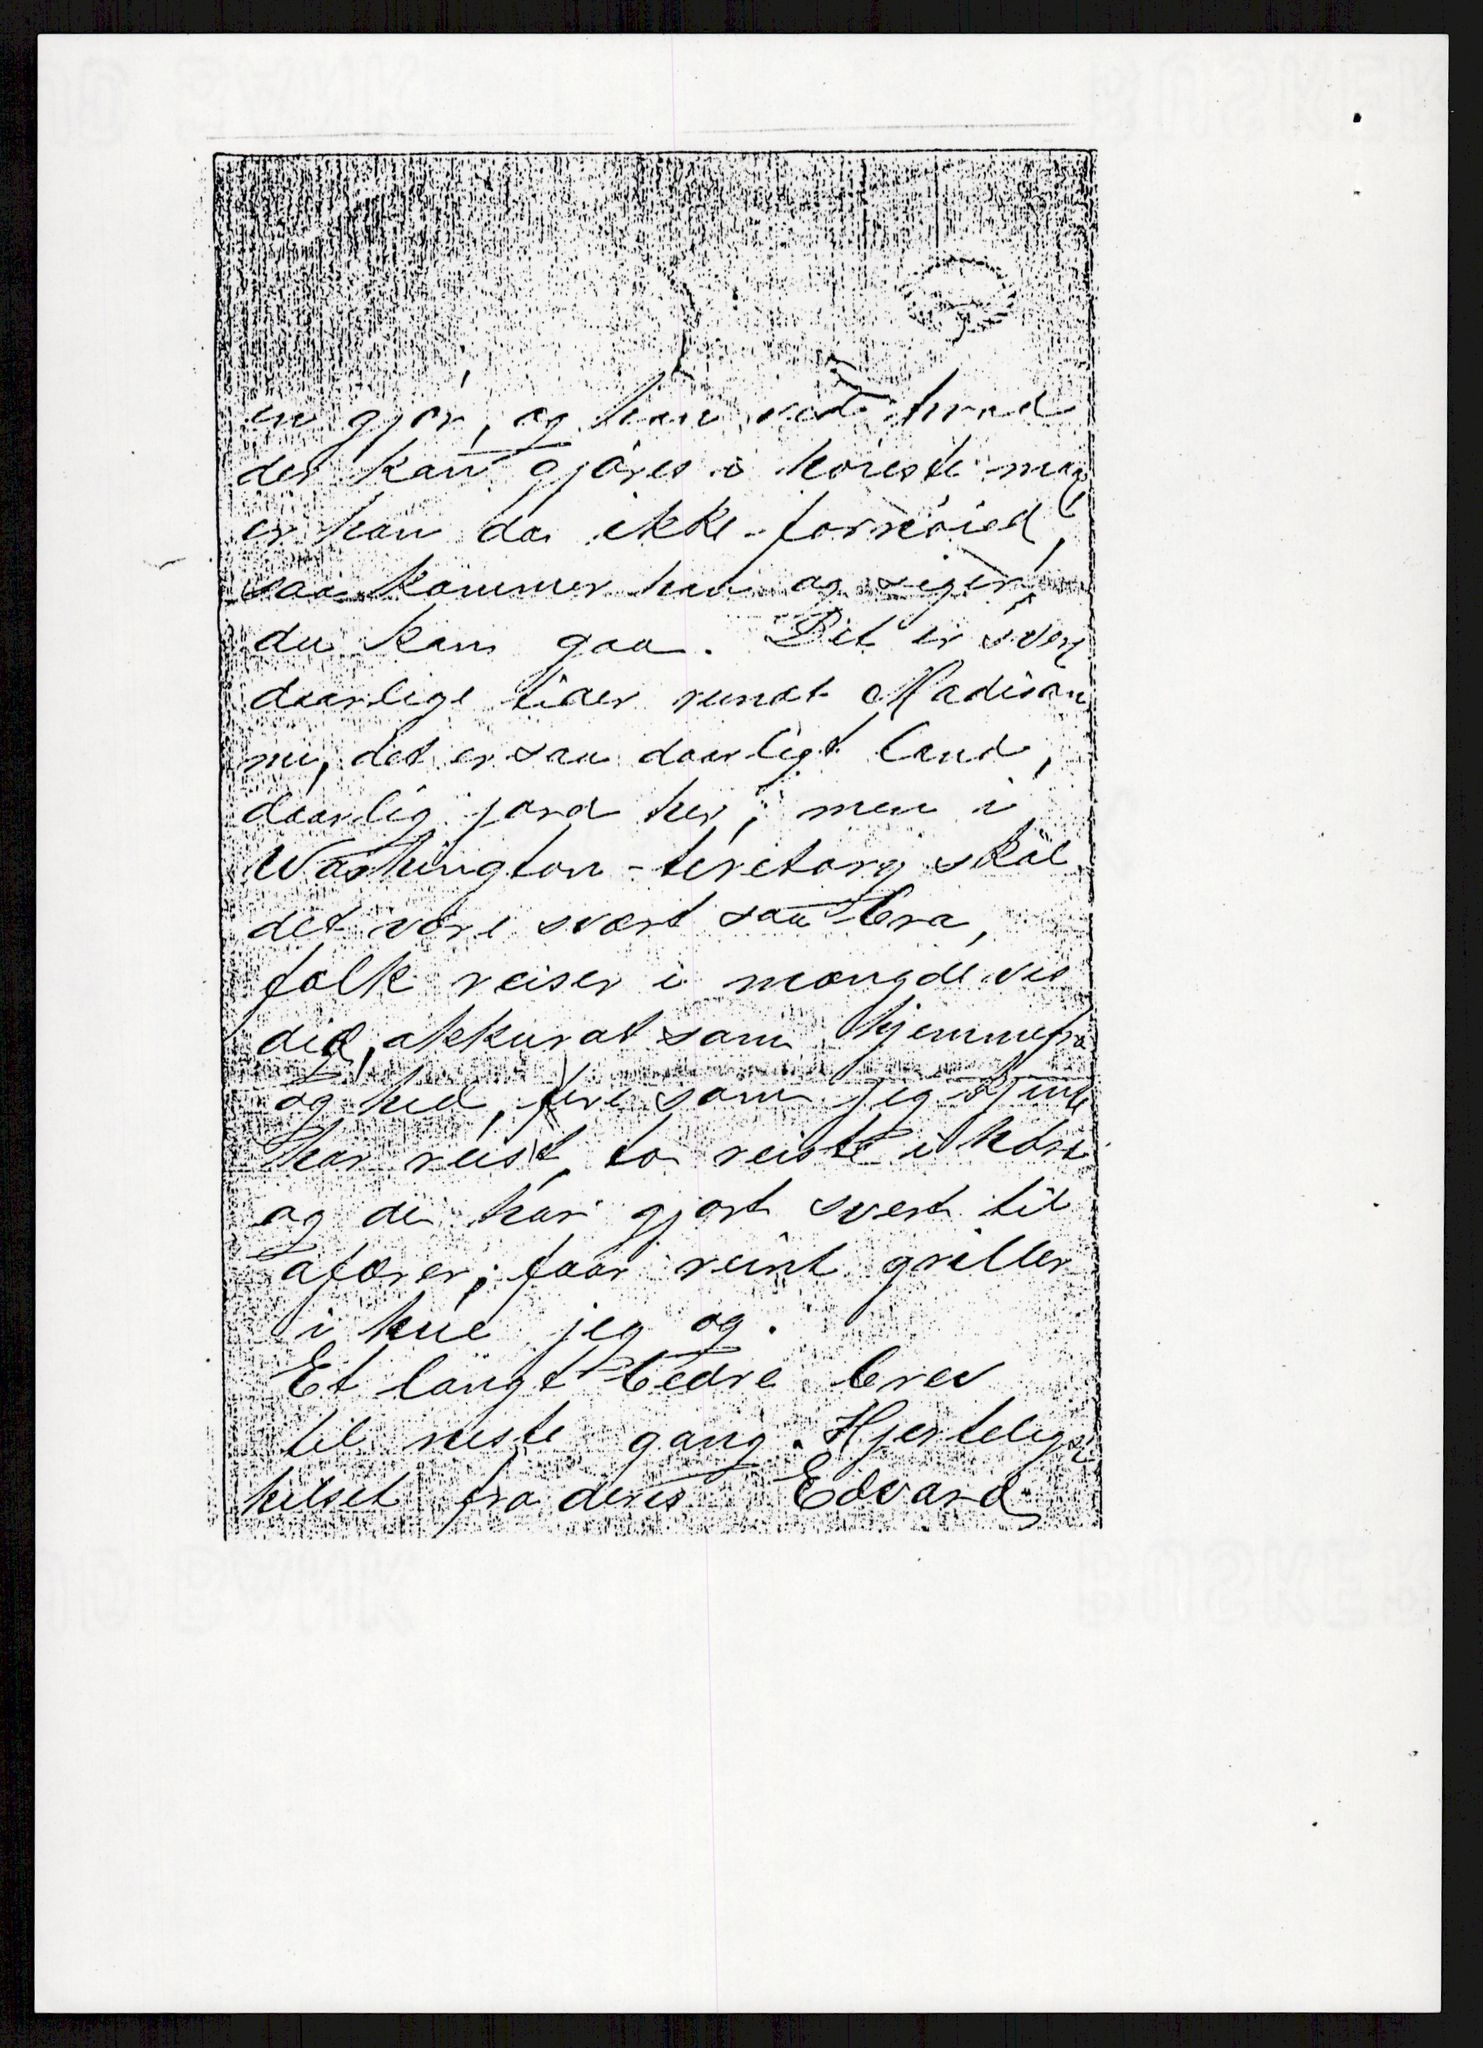 en gjør, og han ved hvad
der kan gjøres i høieste maa
er han da ikke fornøied,
saa kommer han og siger,
du kan gaa. Det er svert
daarlige tider rundt Madison
nu, det er saa daarligt land,
daarlig jord her; men i
Washington-teretory skal
det være svært saa bra,
folk reiser i mængdevis
did, akkurat som hjemmefra
og hid, fire som jeg kjente
har reist, to reiste i høst
og de har gjort svert til
afærer; faar reint griller
i hue jeg og.
Et langt bedre brev
til neste gang. Hjerteligst
hilset fra deres Edvard